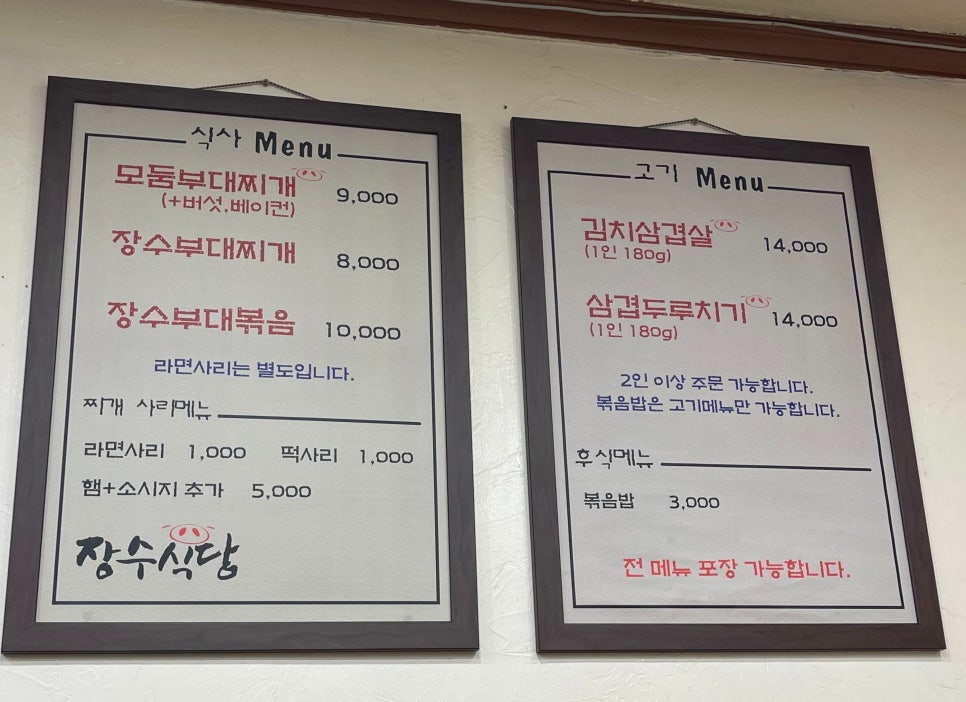 식사 Menu
모둠부대찌개 9,000
(+버섯,베이컨)
장수부대찌개 8,000
장수부대볶음 10,000
라면사리는 별도입니다.
찌개 사리메뉴
라면사리 1,000 떡사리 1,000
햄+소시지 추가 5,000
장수식당
고기 Menu
김치삼겹살 14,000
(1인 180g)
삼겹두루치기 14,000
(1인 180g)
2인 이상 주문 가능합니다.
볶음밥은 고기메뉴만 가능합니다.
후식메뉴
볶음밥 3,000
전 메뉴 포장 가능합니다.